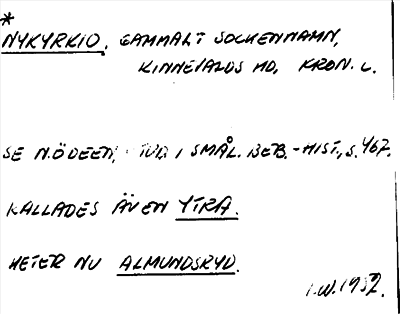 *
NYKYRKIO. GAMMALT SOCKENNAMN,
KINNEVALDS HD, KRON. L.
SE N. ÖDEEN, STUD. I SMÅL. BEB.-HIST., S. 467.
KALLADES ÄVEN YTRA.
HETER NU ALMUNDSRYD.
I.W. 1952.